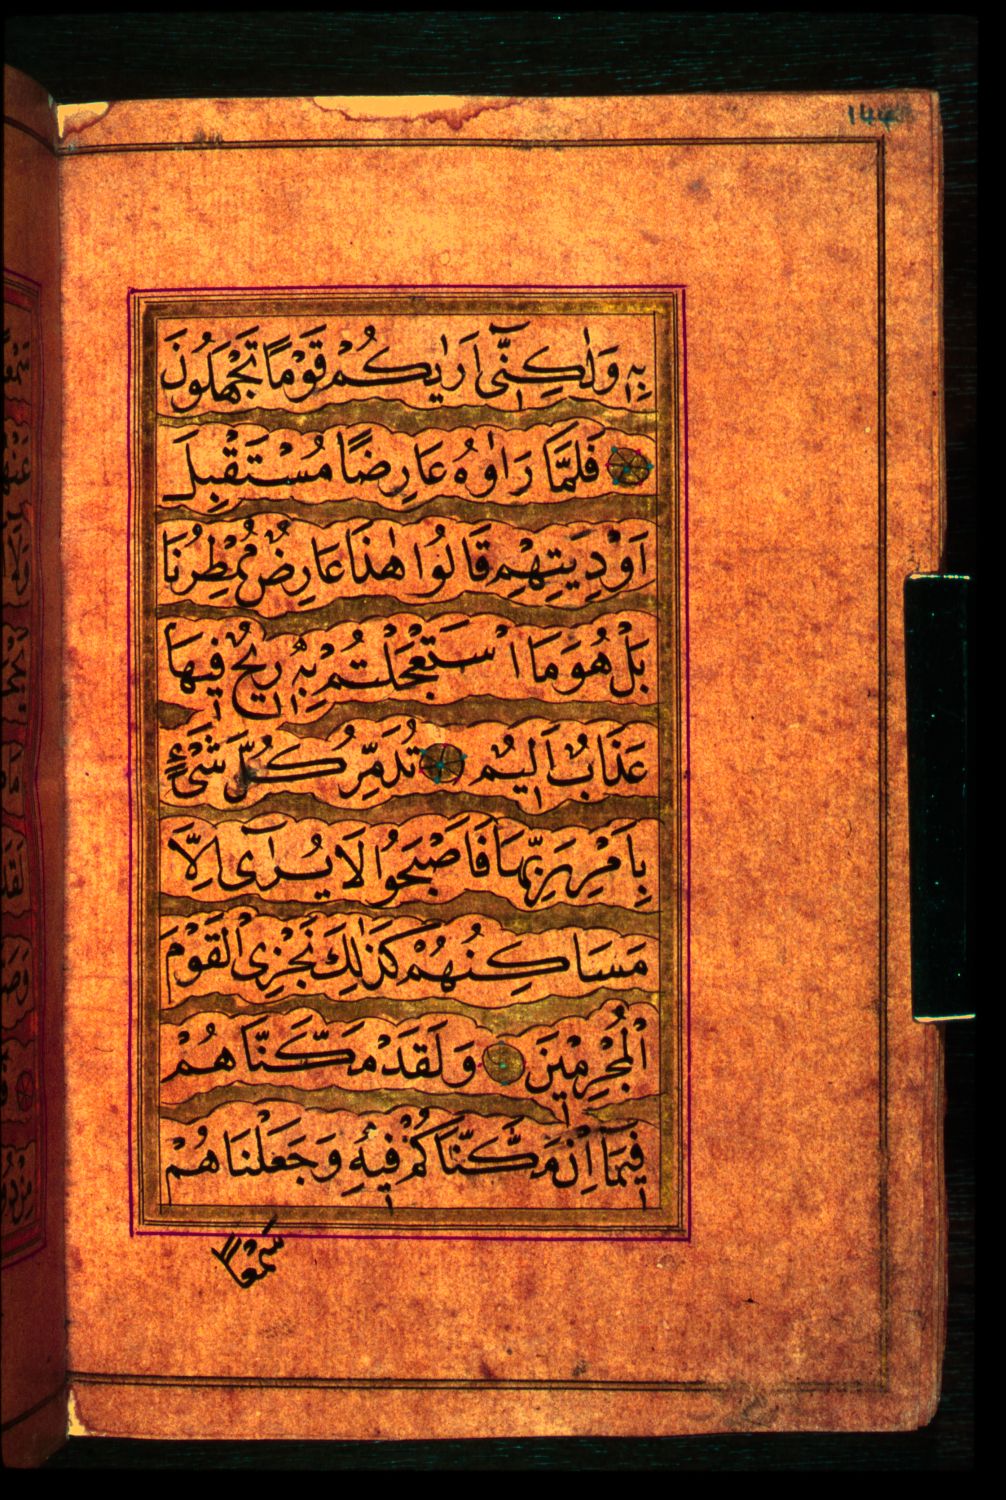 ١٤٤
بِهٖ وَلٰكِنّٓى اَرٰيكُمْ قَوْمًا تَجْهَلُونَ
فَلَمَّا رَاَوْهُ عَارِضًا مُسْتَقْبِلَ
اَوْدِيَتِهِمْ قَالُوا هٰذَا عَارِضٌ مُمْطِرُنَا
بَلْ هُوَ مَا اسْتَعْجَلْتُمْ بِهٖ رِيحٌ فِيهَا
عَذَابٌ اَلِيمٌ تُدَمِّرُ كُلَّ شَىْءٍ
بِاَمْرِ رَبِّهَا فَاَصْبَحُوا لَا يُرٰٓى اِلَّا
مَسَاكِنُهُمْ كَذٰلِكَ نَجْزِى الْقَوْمَ
الْمُجْرِمٖينَ وَلَقَدْ مَكَّنَّاهُمْ
فٖيمَٓا اِنْ مَكَّنَّاكُمْ فٖيهِ وَجَعَلْنَا هُمْ
سَمْعًا